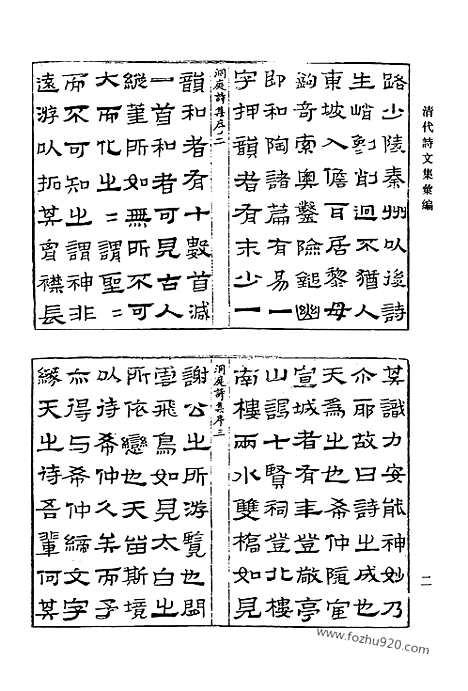 清代詩文集彙編
路少陵秦州以後詩
生峭刻削迥不猶人
東坡入儋耳居黎母
鉤奇索奧鑿險鎚幽
即和陶諸篇有易一
字押韻者有末少一
洞庭詩集序二
韻和者有十數首減
一首和者可見古人
縱筆所如無所不可
大而化之〻謂聖〻
而不可知之謂神非
遠游以拓其胷襟長
其識力安能神妙乃
尒耶故曰詩之成也
天為之也希仲隨宦
宣城者有年登敬亭
山謁七賢祠登北樓
南樓兩水雙橋如見
洞庭詩集序三
謝公之所游覽也閒
雲飛鳥如見太白之
所依戀也天留斯境
以待希仲久矣而予
亦得与希仲締文字
緣天之待吾輩何其
二
www.fozhu920.com